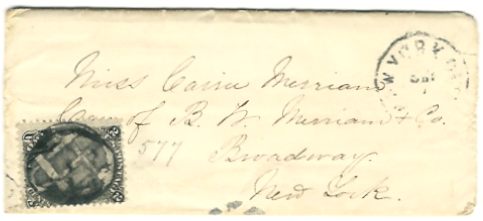 Miss Carrie Merriam
Care of B. W. Merriam & Co.
577 Broadway.
New York.
W YORK